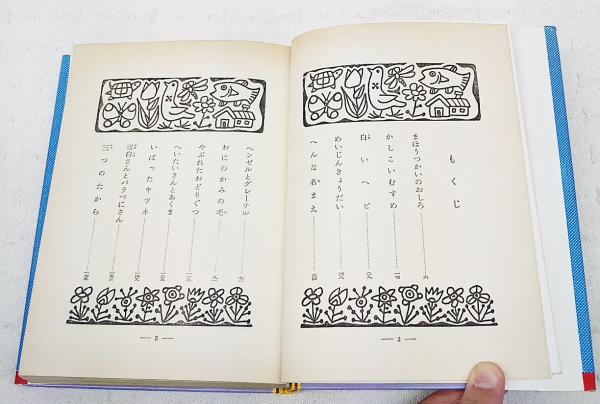 もくじ
まほうつかいのおしろ
かしこいむすめ
白いヘビ
めいじんきょうだい
へんな名まえ
— 2 —
ヘンゼルとグレーテル
おにのかみの毛
やぶれたおどりぐつ
へいたいさんとあくま
いばったキツネ
雪白さんとバラべにさん
三つのたから
— 3 —